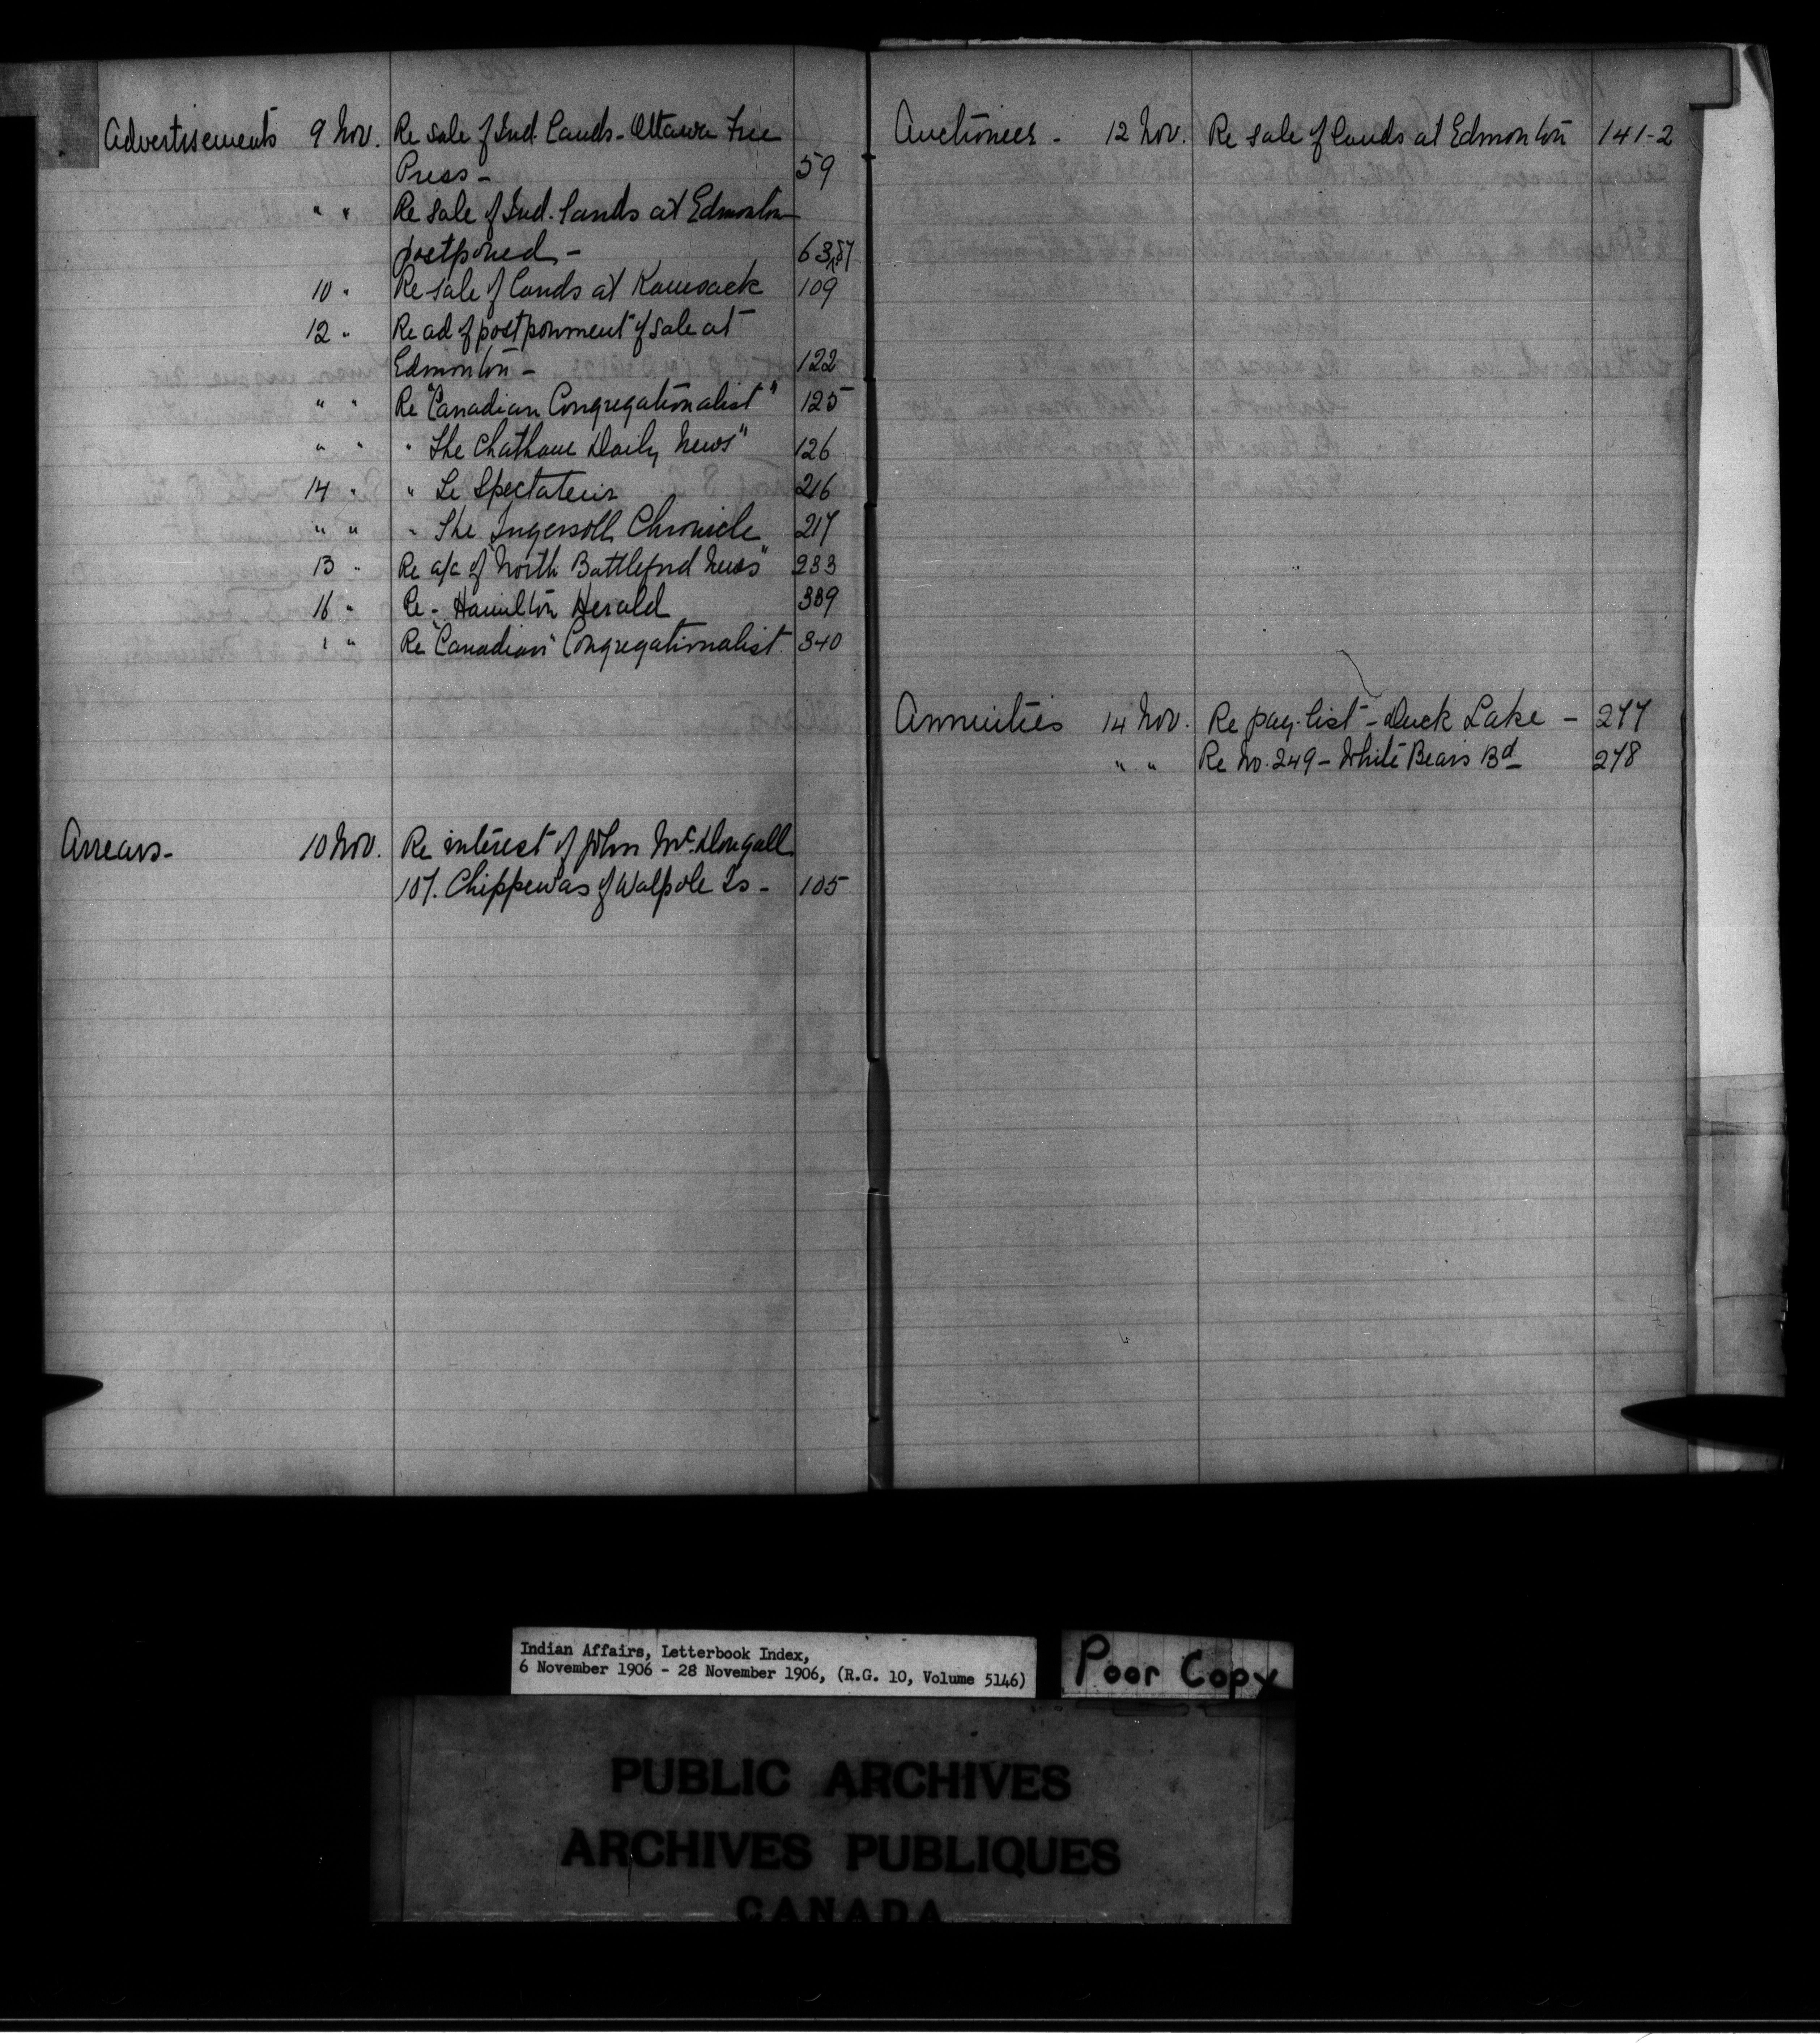 Advertisements 9 Nov. Re sale of Ind. Lands - Ottawa Free
Press - 59
" " Re sale of Ind. lands at Edmonton
postponed - 63,57
10 " Re sale of lands at Kamsack 109
12 " Re ad of postponment of sale at
Edmonton - 122
" " Re "Canadian Congregationalist" 125
" " " The Chatham Daily News" 126
14 " " Le Spectateur 216
" " " The Ingersoll Chronicle 217
13 " Re a/c of "North Battleford News" 233
16 " Re - Hamilton Herald 339
" " Re "Canadian" Congregationalist. 340
Arrears - 10 Nov. Re interest of John McDougall
107. Chippewas of Walpole Is - 105
Auctioneer - 12 Nov. Re sale of lands at Edmonton 141-2
Annuities 14 Nov. Re pay-list - Duck Lake - 277
" " Re No. 249 - White Bears Bd 278
Indian Affairs, Letterbook Index,
6 November 1906 - 28 November 1906, (R.G. 10, Volume 5146)
Poor Copy
PUBLIC ARCHIVES
ARCHIVES PUBLIQUES
CANADA